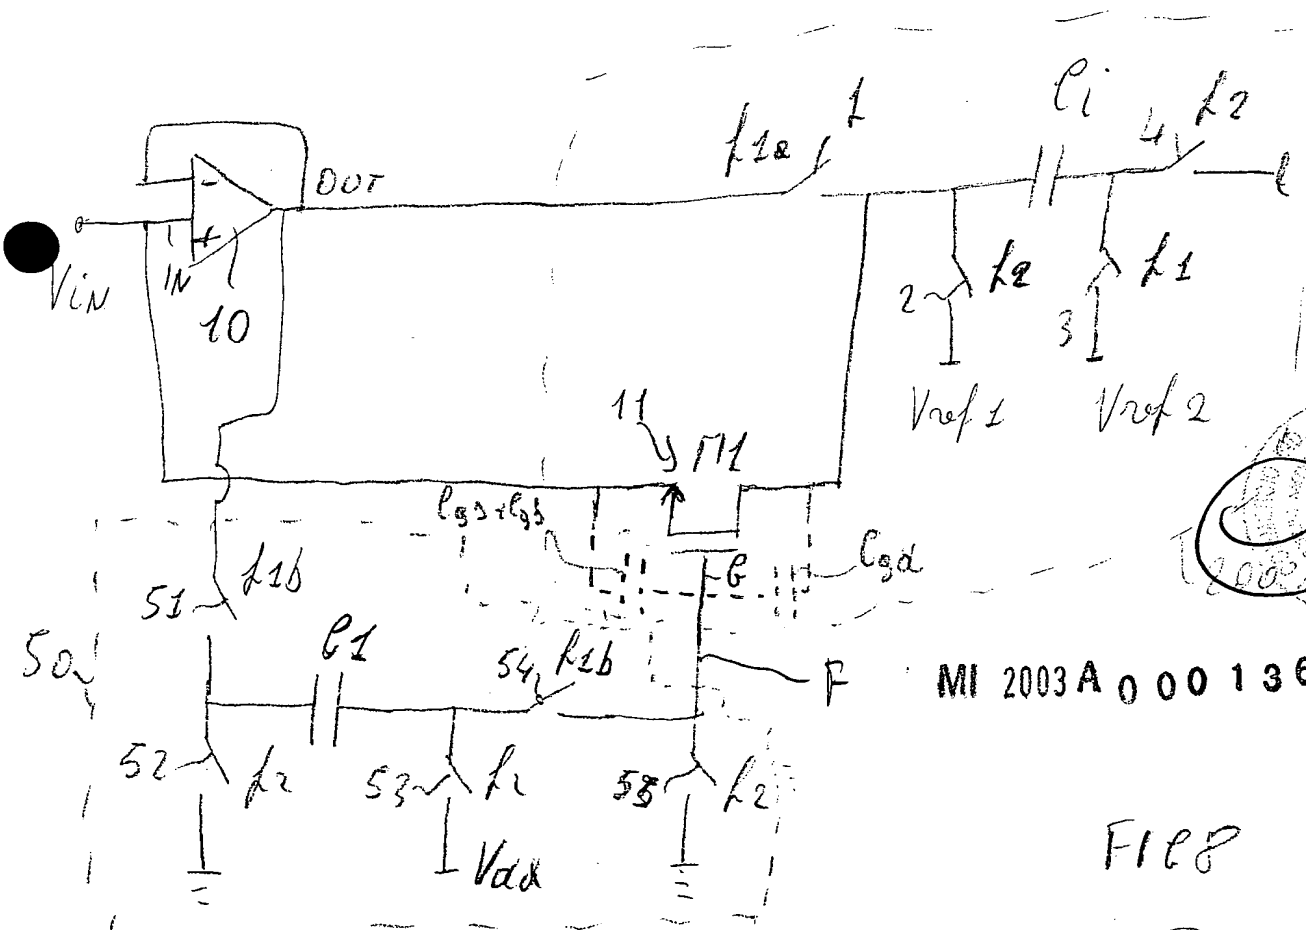 Ci
1
f1a
4
f2
OUT
-
+
IN
VIN
10
2
f2
3
f1
Vref1
Vref2
11
M1
Cgd
G
51
f1b
50
C1
54
f1b
F
MI 2003 A 000136
52
f2
53
f2
55
f2
Vdd
FIG8